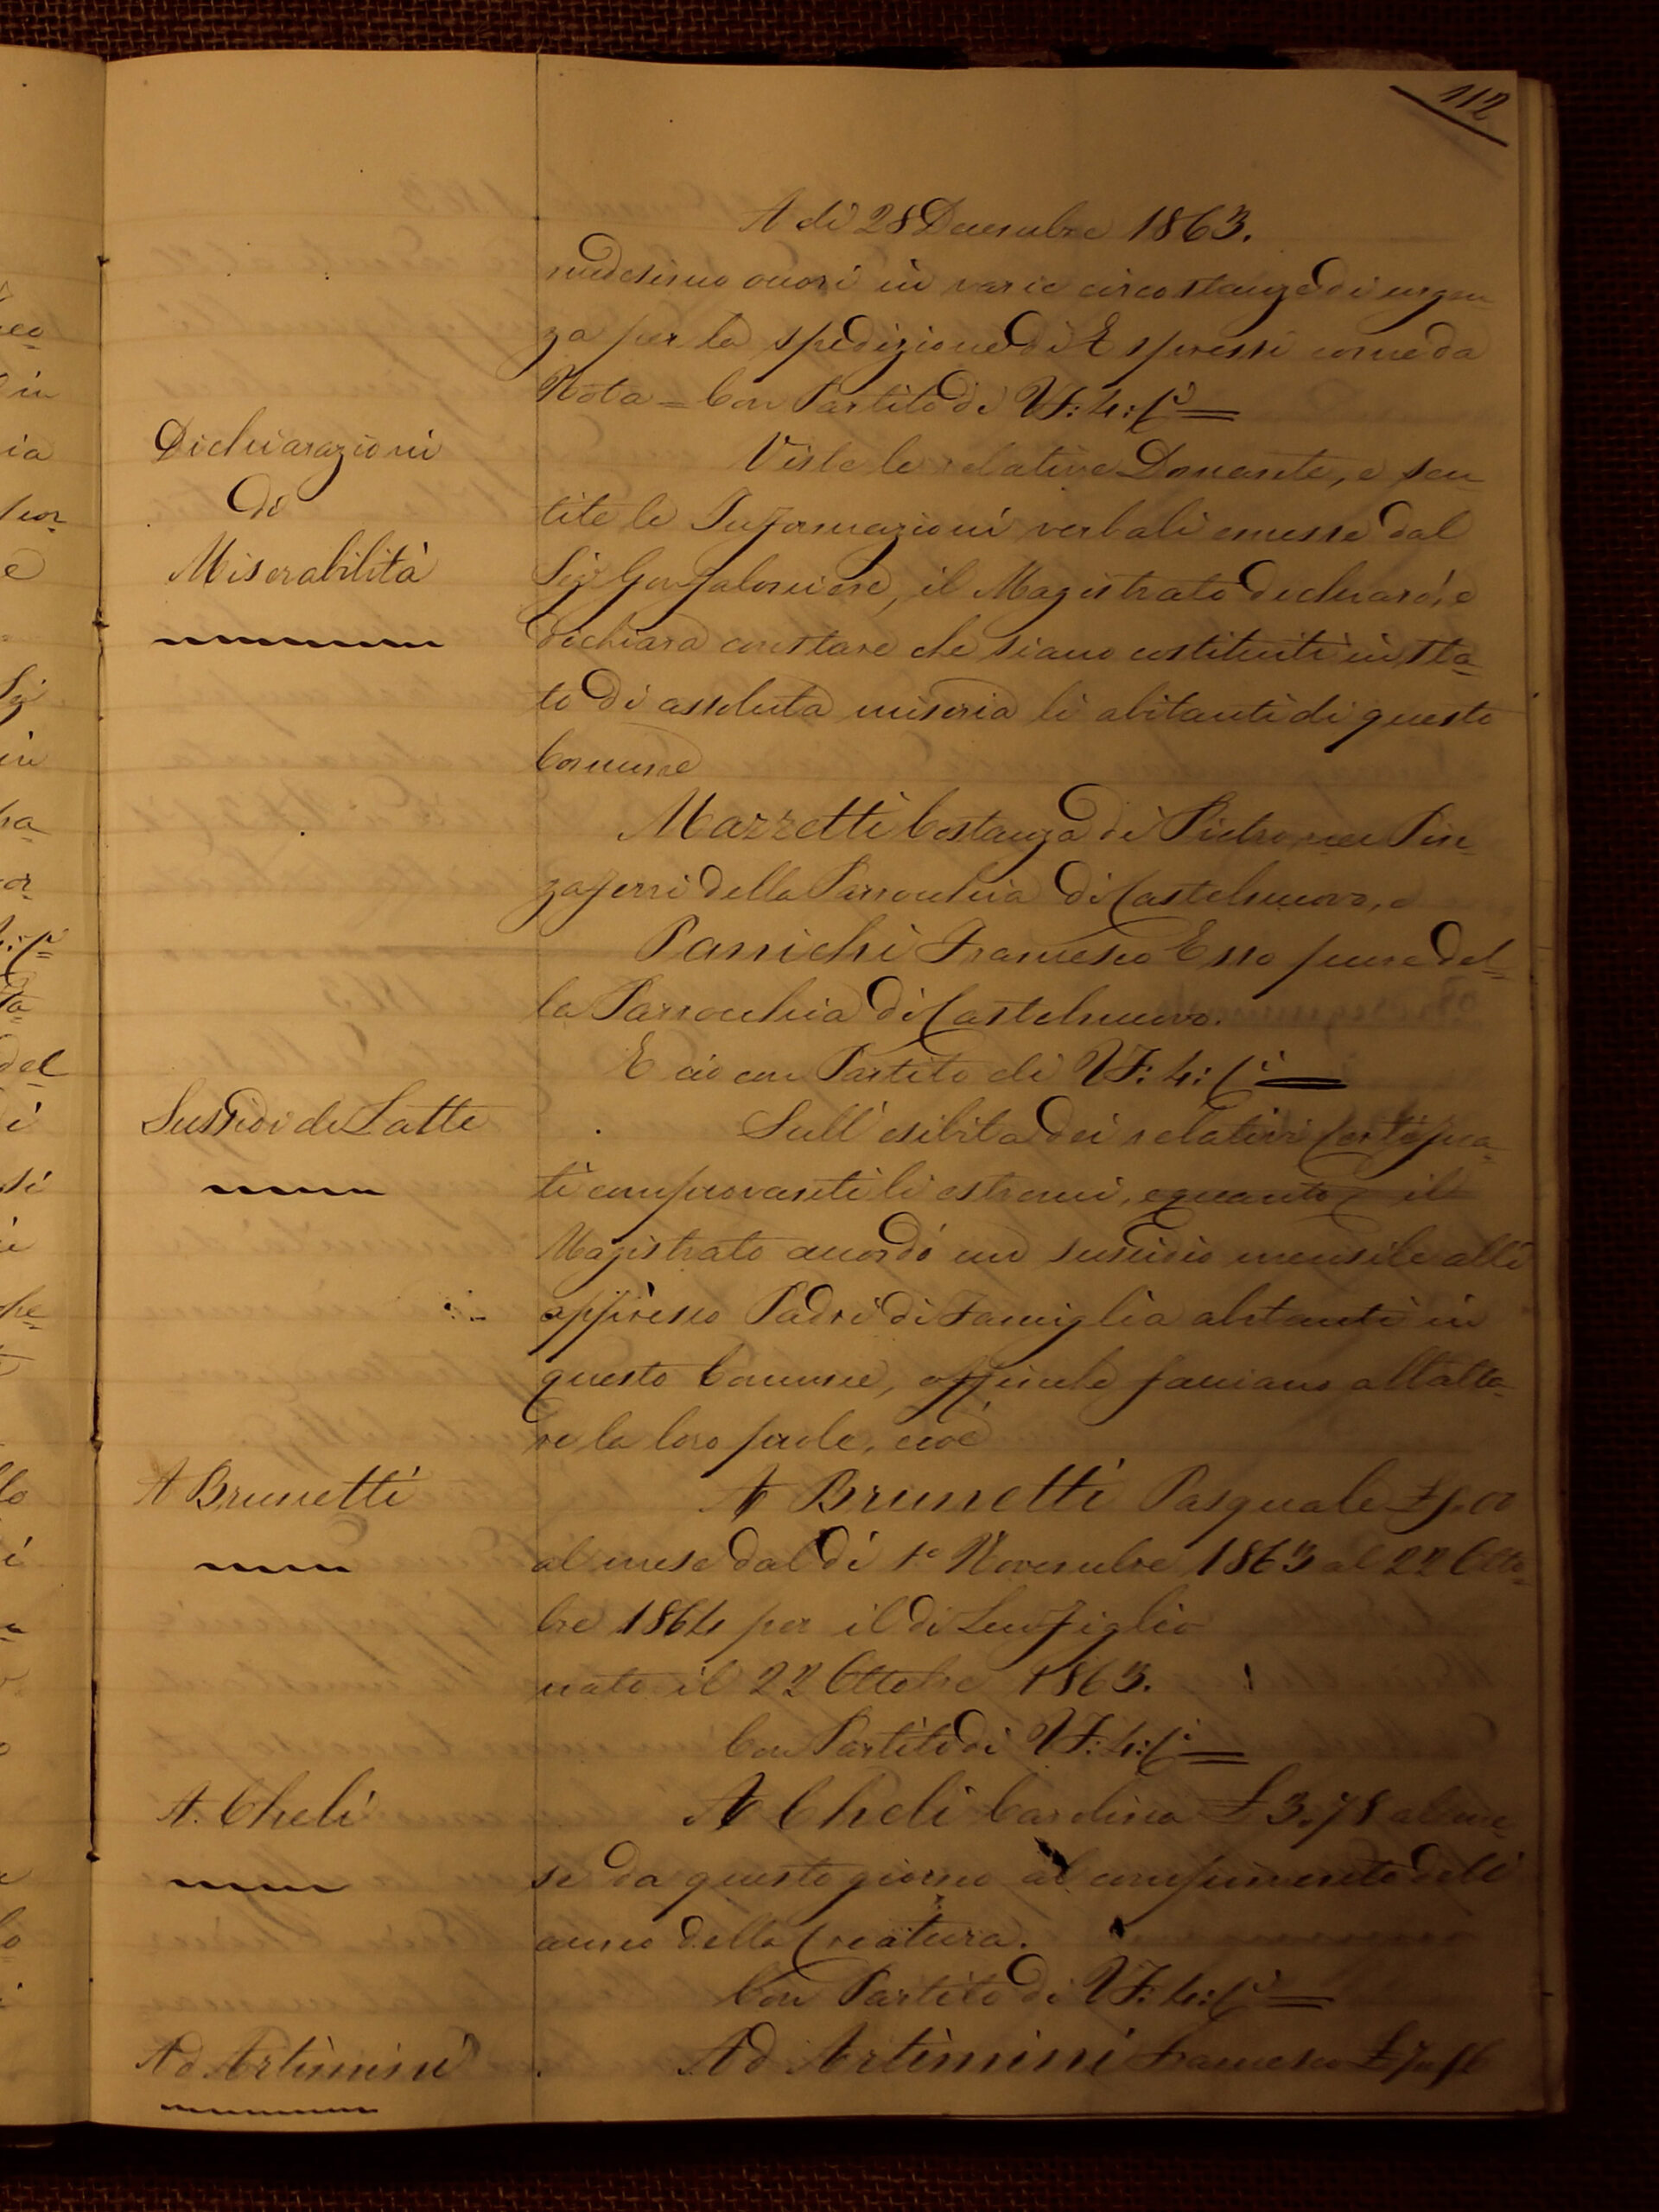 112
A di 28 Decembre 1863.
medesimo occorsi in varie circostanze di urgen
za per la spedizione di Espressi come da
Nota = Con Partito di VF: 4: C i =
Dichiarazioni
di
Miserabilità
Viste le relative Domande, e sen
tite le Informazioni verbali emesse dal
Sig Gonfaloniere, il Magistrato dichiarò, e
dichiara constare che siano costituiti in sta=
to di assoluta miseria li abitanti di questo
Comune
Mazzetti Costanza di Pietro nei Pin
zaferri della Parrocchia di Castelnuovo, e
Panichi Francesco Esso pure del=
la Parrocchia di Castelnuovo.
E ciò con Partito di VF: 4: C i =
Sussidi di Latte
Sull' esibita dei relativi Certifica=
ti comprovanti li estremi, equanto il
Magistrato accordò un sussidio mensile alli
appresso Padri di Famiglia abitanti in
questo Comune, affinche facciano allatta=
re la loro prole, cioè
A Brunetti
A Brunetti Pasquale £
al mese dal dì 1° Novembre 1863 al 22 Otto=
bre 1864 per il di Lui Figlio
nato il 22 Ottobre 1863.
Con Partito di VF: 4: C i =
A. Cheli
A Cheli Carolina £ 3.78 al me=
se da questo giorno al compimento dell'
anno della Creatura.
Con Partito di VF: 4: C i =
Ad Artimini
Ad Artimini Francesco £